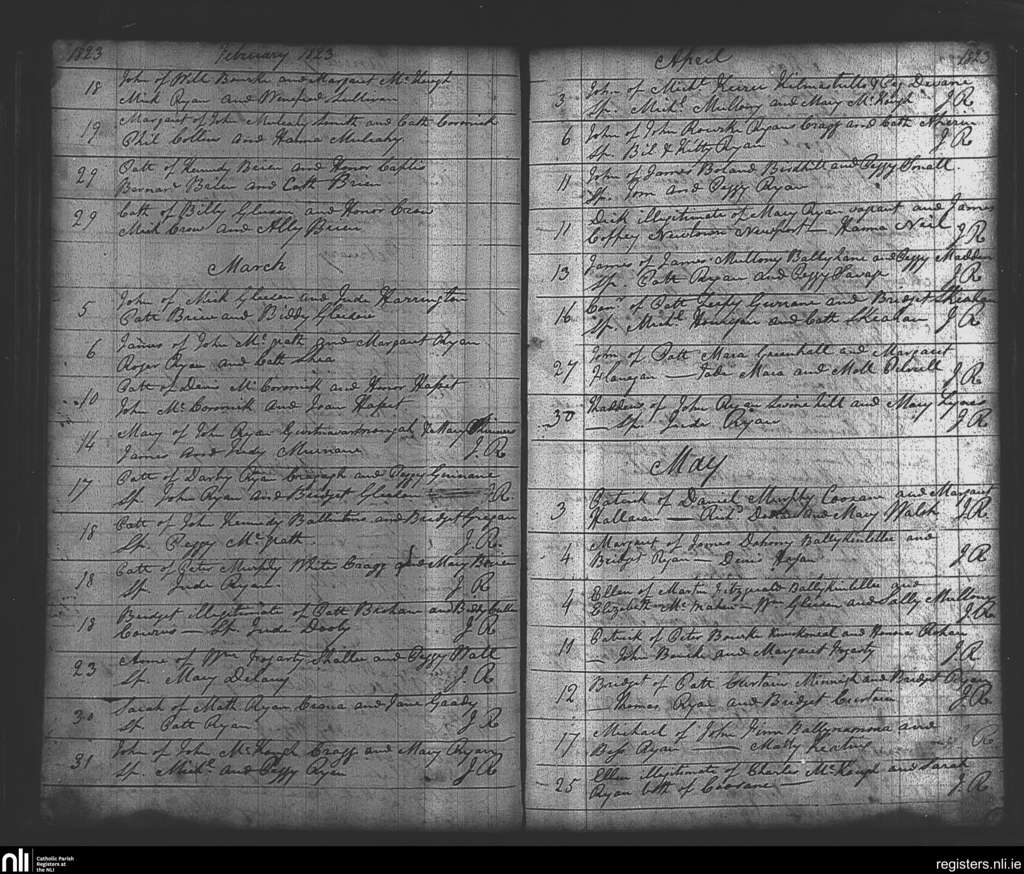 1823 February 1823
18 John of Will Bourke and Margaret McKeogh
Mick Ryan and Winefred Sullivan
19 Margaret of John Mulcahy Smith and Cath Coromick
Phil Collins and Hanna Mulcahy
29 Patt of Kennedy Brien and Honor
Bernard Brien and Cath Brien
29 Cath of Billy Gleeson and Honor Crow
Mick Crow and Ally Brien
March
5 John of Mick Gleeson and Jude Harrington
Patt Brien and Biddy Gleeson
6 James of John McGrath and Margaret Ryan
Roger Ryan and Cath Shea
10 Patt of Denis McCoromick and Honor
John McCoromick and Joan
14 Mary of John Ryan & Mary
James and Judy Murnane J.R
17 Patt of Darby Ryan and Peggy Guinane
Sp. John Ryan and Bridget Gleeson J.R.
18 Patt of John Kennedy and Bridget
Sp. Peggy McGrath J.R.
18 Cath of Peter Murphy White Cragg and Mary Brien
Sp. Jude Ryan J R
18 Bridget illegitimate of Patt and
Sp. Jude J R
23 Anne of Wm Fogarty Shallee and Peggy Wall
Sp. Mary Delany J.R
30 Sarah of Math Ryan and Jane
Sp. Patt Ryan J R
31 John of John McKeogh Cragg and Mary Ryan
Sp. Michl. and Peggy Ryan J R
April 1823
3 John of Michl. Kilmastulla & Devane
Sp. Michl. Mullony and Mary McKeogh J R
6 John of John Rourke Ryans Cragg and Cath
Sp. Bil & Kitty Ryan J R
11 John of James Boland Birdhill and Peggy
Sp. Tom and Peggy Ryan
11 Dick illegitimate of Mary Ryan vagrant and James
Coffey Newtown Newport — Hanna Neil J R
13 James of James Mullony Ballyhane and Peggy Madden
Sp. Patt Ryan and Peggy Savage J R
16 of Patt and Bridget Sheahan
Sp. Michl. Hourigan and Cath Sheahan J R
27 John of Patt Mara Greenhall and Margaret
Flanagan — Mara and Moll J R
30 Thaddeus of John Ryan and Mary Lynes
— Sp. Jude Ryan J R
May
3 Patrick of Daniel Murphy Coosane and Margaret
Halloran — and Mary Walsh J R
4 Margaret of James Dohony Ballykinlillee and
Bridget Ryan — Denis Hogan J R
4 Ellen of Martin Fitzgerald Ballykinlillee and
Elizabeth McMahon — Wm Gleeson and Sally Mullony J R
11 Patrick of Peter Bourke and Honora
— John Bourke and Margaret Fogarty J R
12 Bridget of Patt Curtain and Bridget Ryan
— Thomas Ryan and Bridget Curtain J R
17 Michael of John and
Bess Ryan — R
25 Ellen illegitimate of Charles McKeogh and Sarah
Ryan both of Coosane — J R
nli
Catholic Parish
Registers at
the NLI
registers.nli.ie